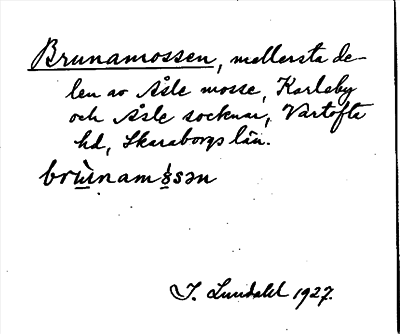 Brunamossen, mellersta de-
len av Åsle mosse, Karleby
och Åsle socknar, Vartofta
hd, Skaraborgs län.
brùnamåsən
I. Lundahl 1927.